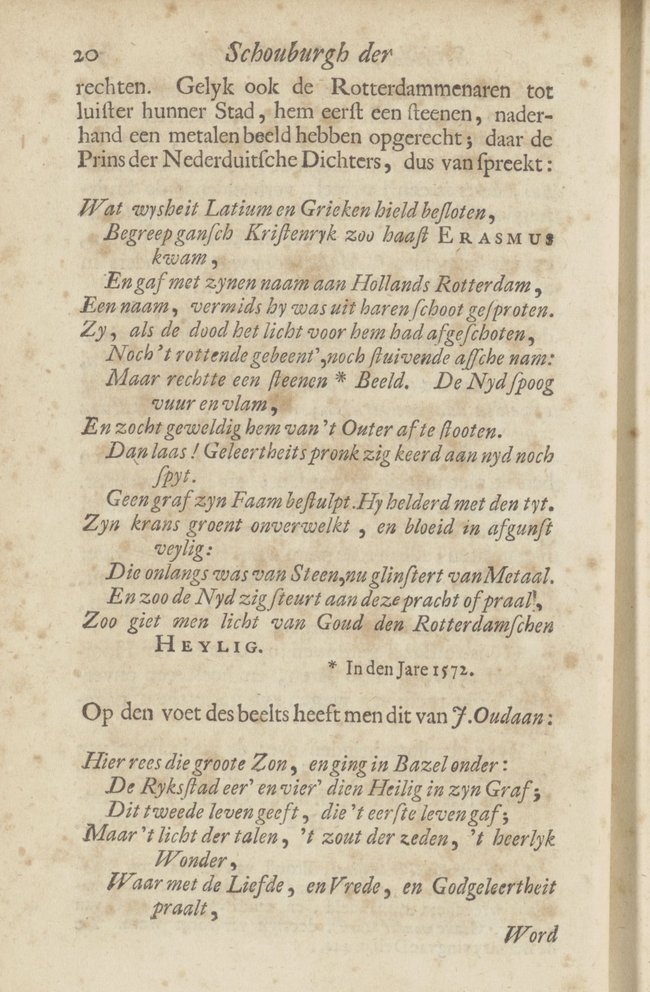 20 Schouburgh der
rechten. Gelyk ook de Rotterdammenaren tot
luiſter hunner Stad, hem eerſt een ſteenen, nader-
hand een metalen beeld hebben opgerecht; daar de
Prins der Nederduitſche Dichters, dus van ſpreekt:
Wat wysheit Latium en Grieken hield beſloten,
Begreep ganſch Kriſtenryk zoo haaſt ERASMUS
kwam,
En gaf met zynen naam aan Hollands Rotterdam,
Een naam, vermids hy was uit haren ſchoot geſproten.
Zy, als de dood het licht voor hem had afgeſchoten,
Noch 't rottende gebeent', noch ſtuivende aſſche nam:
Maar rechtte een ſteenen * Beeld. De Nyd ſpoog
vuur en vlam,
En zocht geweldig hem van 't Outer af te ſtooten.
Dan laas! Geleertheits pronk zig keerd aan nyd noch
ſpyt.
Geen graf zyn Faam beſtulpt. Hy helderd met den tyt.
Zyn krans groent onverwelkt, en bloeid in afgunſt
veylig:
Die onlangs was van Steen, nu glinſtert van Metaal.
En zoo de Nyd zig ſteurt aan deze pracht of praal!,
Zoo giet men licht van Goud den Rotterdamſchen
HEYLIG.
* In den Jare 1572.
Op den voet des beelts heeft men dit van J. Oudaan:
Hier rees die groote Zon, en ging in Bazel onder:
De Ryksſtad eer' en vier' dien Heilig in zyn Graf;
Dit tweede leven geeft, die 't eerſte leven gaf;
Maar 't licht der talen, 't zout der zeden, 't heerlyk
Wonder,
Waar met de Liefde, en Vrede, en Godgeleertheit
praalt,
Word